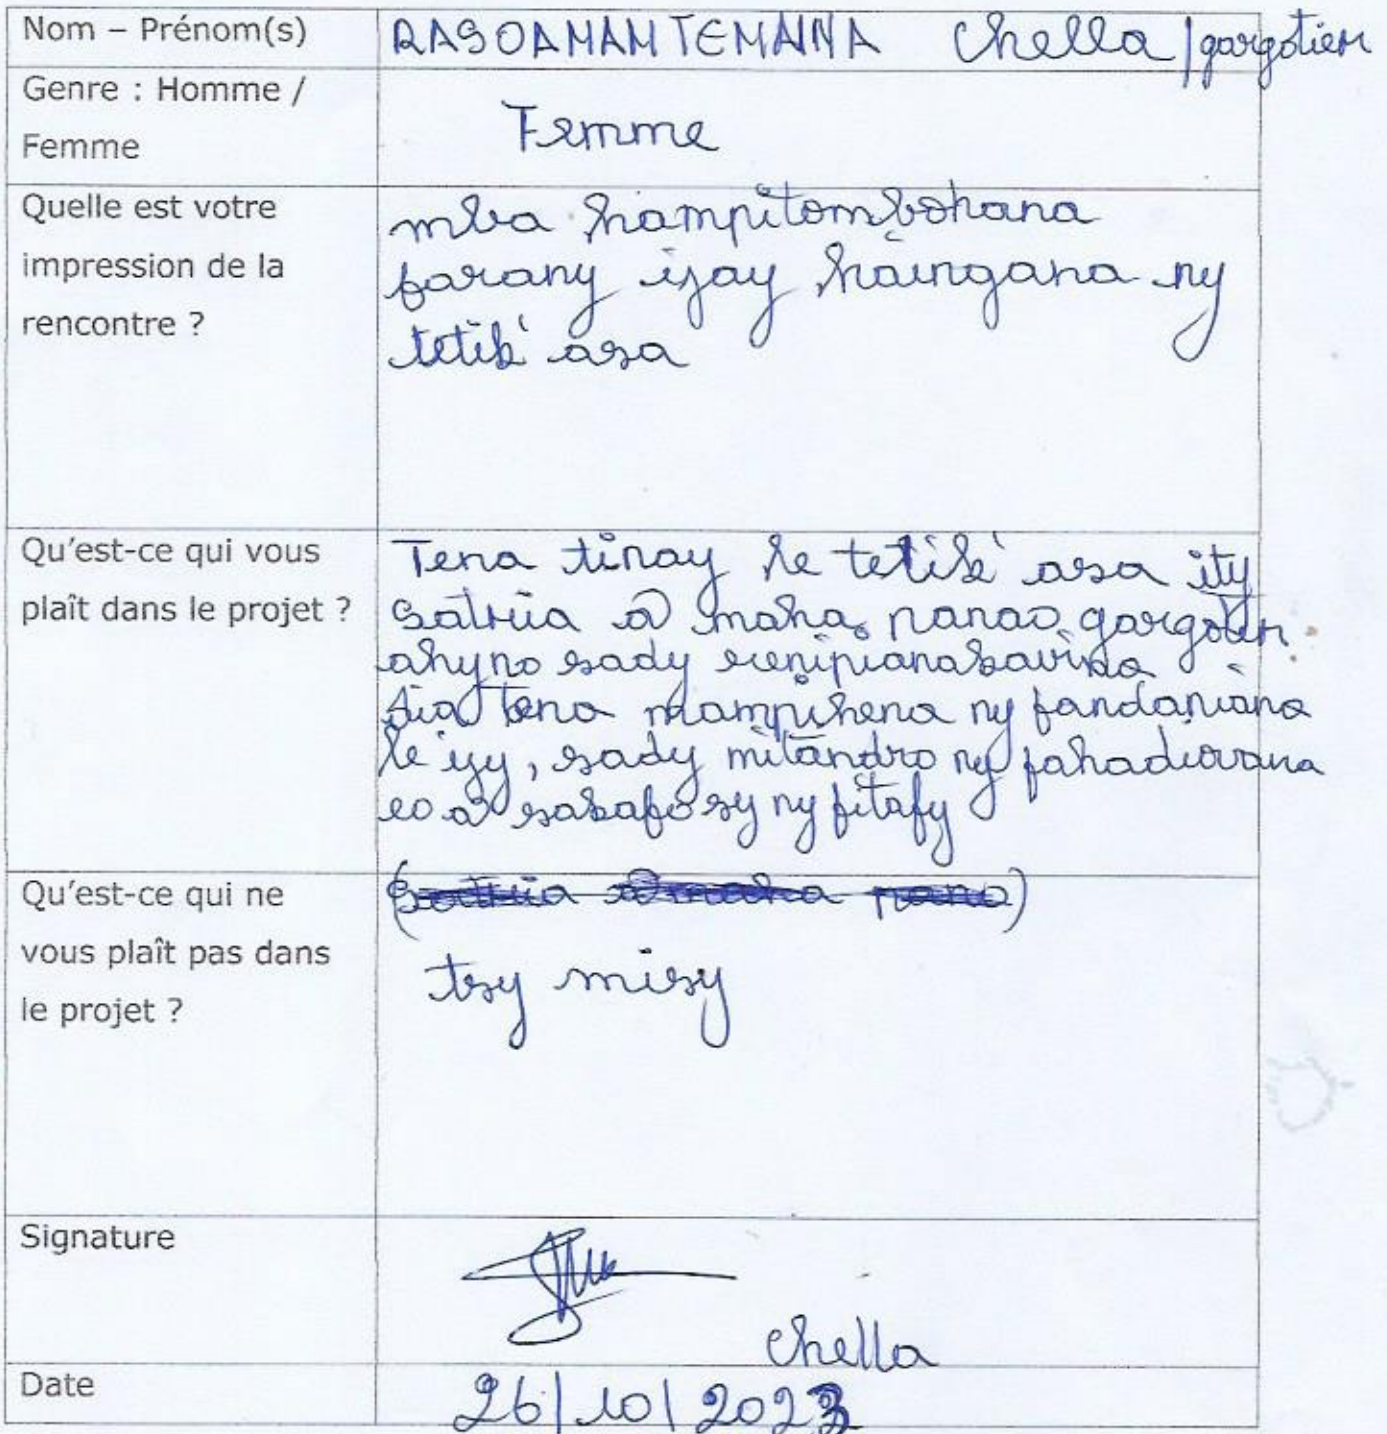 Nom – Prénom(s)
RASOAMAMTEMAINA Chella / gargotien
Genre : Homme /
Femme
Femme
Quelle est votre
impression de la
rencontre ?
mba hampitombohana
farany izay haingana ny
tetik' asa
Qu'est-ce qui vous
plaît dans le projet ?
Tena tinay le tetik' asa ity
satria maha panao
ahy no sady
dia tena mampihena ny fandaniana
le izy, sady mitandro ny fahadiovana
eo a sakafo sy ny fitafy
Qu'est-ce qui ne
vous plaît pas dans
le projet ?
tsy misy
Signature
Chella
Date
26/10/2023